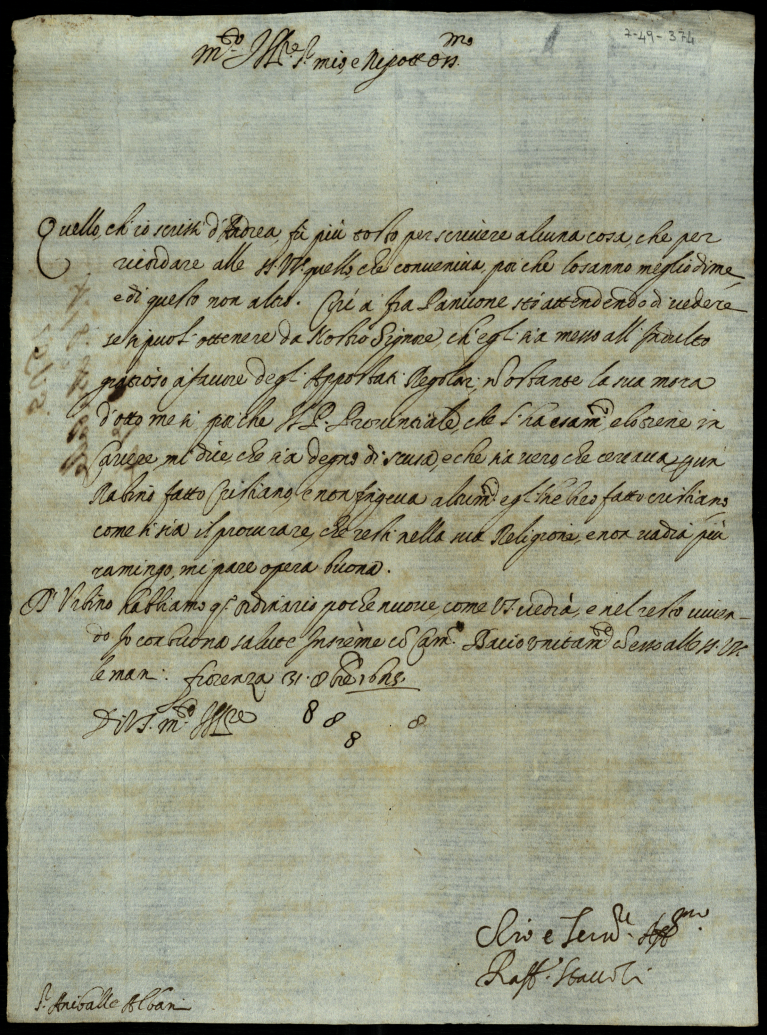 7-49-374
m.to Ill.re S.r mio, e Nipote oss.mo
Quello, ch'io scrissi d'Andrea, fù più tosto per scrivere alcuna cosa, che per
ricordare alle SS. VV. quello, che conveniva, poi che lo sanno meglio di me,
e di questo non altro. Circa fra stò attendendo di vedere
se si può ottenere da Nostro Signore, ch'egli sia messo all'Indulto
grazioso à favore degl'Apposta.ti Regolari, n'ostante la sua mora
d'otto mesi, poiche il P. Provinciale, che l'ha esam.to, e lo tiene in
carcere mi dice, che sia degno di scusa, e che sia vero, che cercava un
Rabino fatto Cristiano, e non fugeva altrim.ti egl'hebreo fatto cristiano
come si sia il procurare, che resti nella sua Religione, e non vadia più
ramingo, mi pare opera buona.
D'Urbino habbiamo q.o ordinario poche nuove come VS. vedrà, e nel resto viven-
do Io con buona salute Insieme cò Cam.o unitam.te cò esso alle SS. VV.
le man: fiorenza 31. 8bre
Di VS. m.to Ill.re 8 8 8 8
Zio e Ser.re Aff.mo
Raff. Staccoli
S.r Anibale Albani